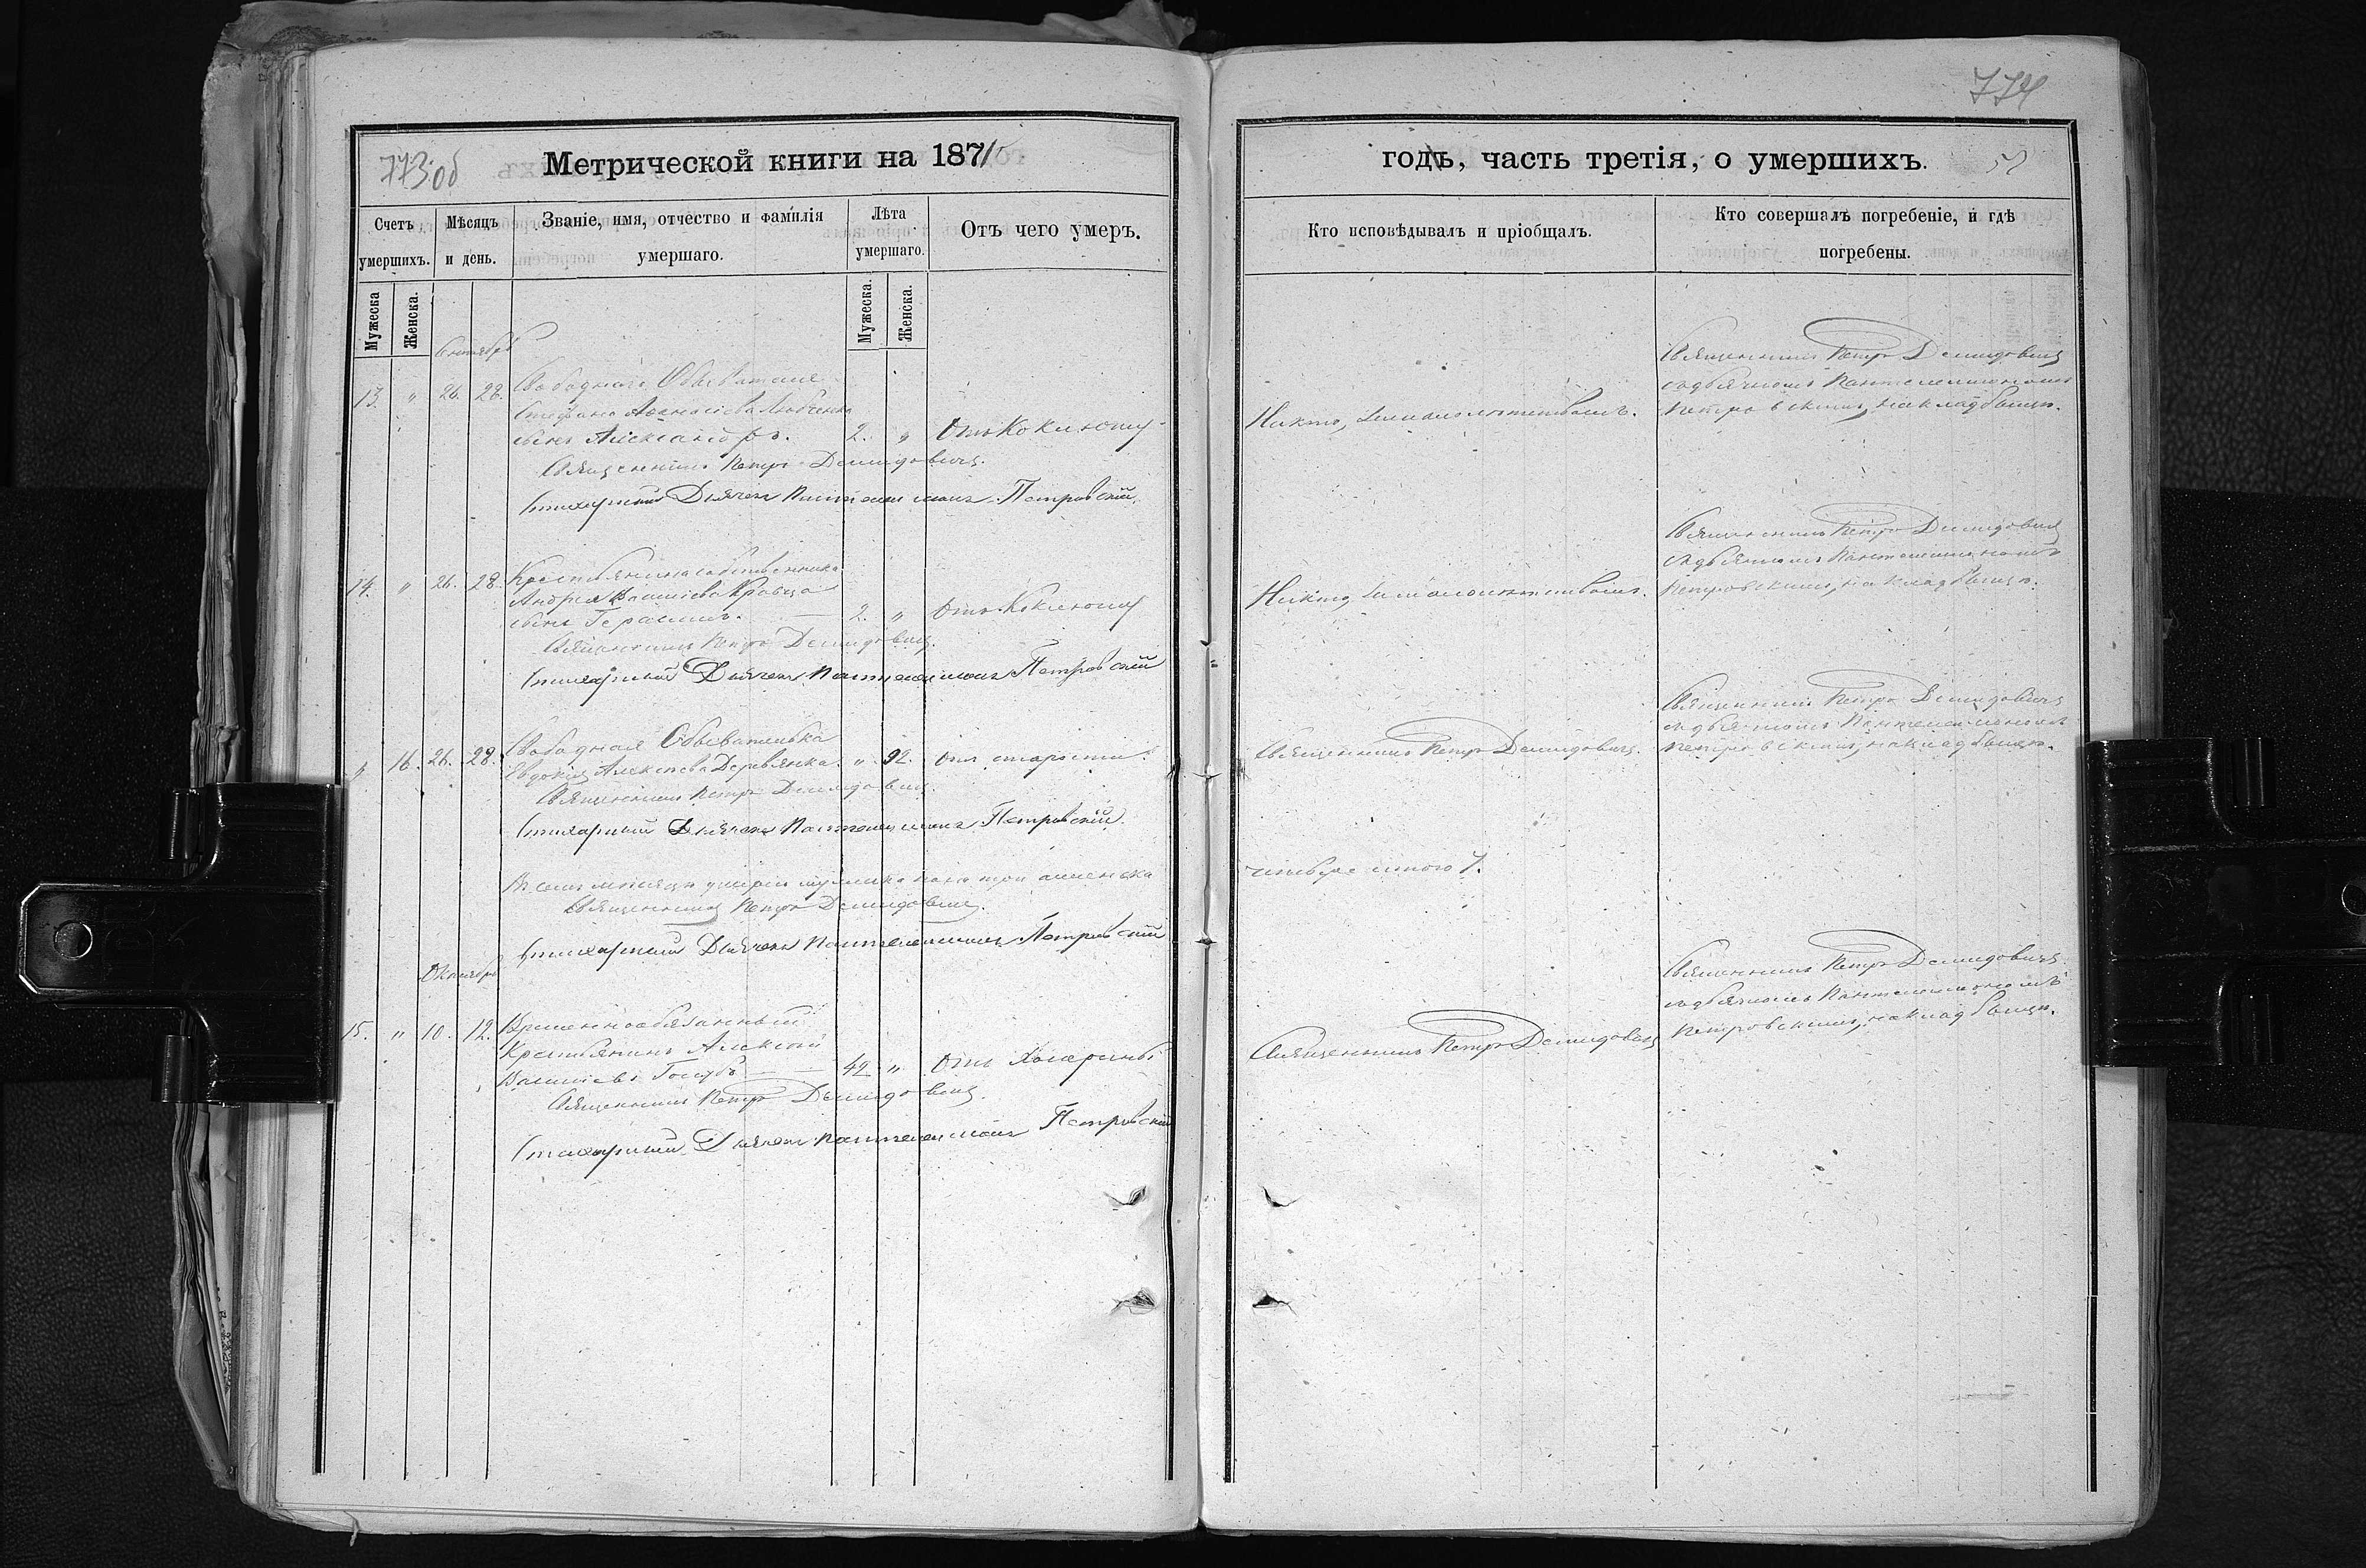 773 об
Метрической книги на 1871
Счетъ умершихъ.
Мѣсяцъ и день.
Званіе, имя, отчество и фамилія умершаго.
Лѣта умершаго.
Отъ чего умеръ.
Мужеска
Женска.
Мужеска.
Женска.
Сентябрь
13. " 26. 28. Свободнаго Обывателя
Стефана Аѳанасіева
сынъ Александръ. 2. " Отъ Коклюшу
Священникъ Петръ Демидовичъ.
Стихарный Дьячекъ Пантелеимонъ Петровскій.
14. " 26. 28. Крестьянина собственника
Андрея Василіева Кравца
сынъ Герасимъ. 2. " Отъ Коклюшу
Священникъ Петръ Демидовичъ.
Стихарный Дьячекъ Пантелеимонъ Петровскій
" 16. 26. 28. Свободная Обывателька
Евдокія Алексѣева Деревянка. " 92. отъ старости.
Священникъ Петръ Демидовичъ.
Стихарный Дьячекъ Пантелеимонъ Петровскій.
Въ семъ мѣсяцѣ умерло мужеска пола три женска
Священникъ Петръ Демидовичъ.
Стихарный Дьячекъ Пантелеимонъ Петровскій
Октябрь
15. " 10. 12. Временнообязанный
Крестьянинъ Алексѣй
Василіевъ Голубъ 42 " Отъ Холерины
Священникъ Петръ Демидовичъ.
Стихарный Дьячекъ Пантелеимонъ Петровскій
774
годъ, часть третія, о умершихъ.
Кто исповѣдывалъ и пріобщалъ.
Кто совершалъ погребеніе, и гдѣ погребены.
Священникъ Петръ Демидовичъ
съ дьячкомъ Пантелеимономъ
Никто, за малолѣтствомъ. Петровскимъ, на кладбищѣ.
Священникъ Петръ Демидовичъ
съ дьячкомъ Пантелеимономъ
Никто, за малолѣтствомъ. Петровскимъ, на кладбищѣ.
Священникъ Петръ Демидовичъ
съ дьячкомъ Пантелеимономъ
Священникъ Петръ Демидовичъ. Петровскимъ, на кладбищѣ.
Священникъ Петръ Демидовичъ
съ дьячкомъ Пантелеимономъ
Священникъ Петръ Демидовичъ Петровскимъ, на кладбищѣ.